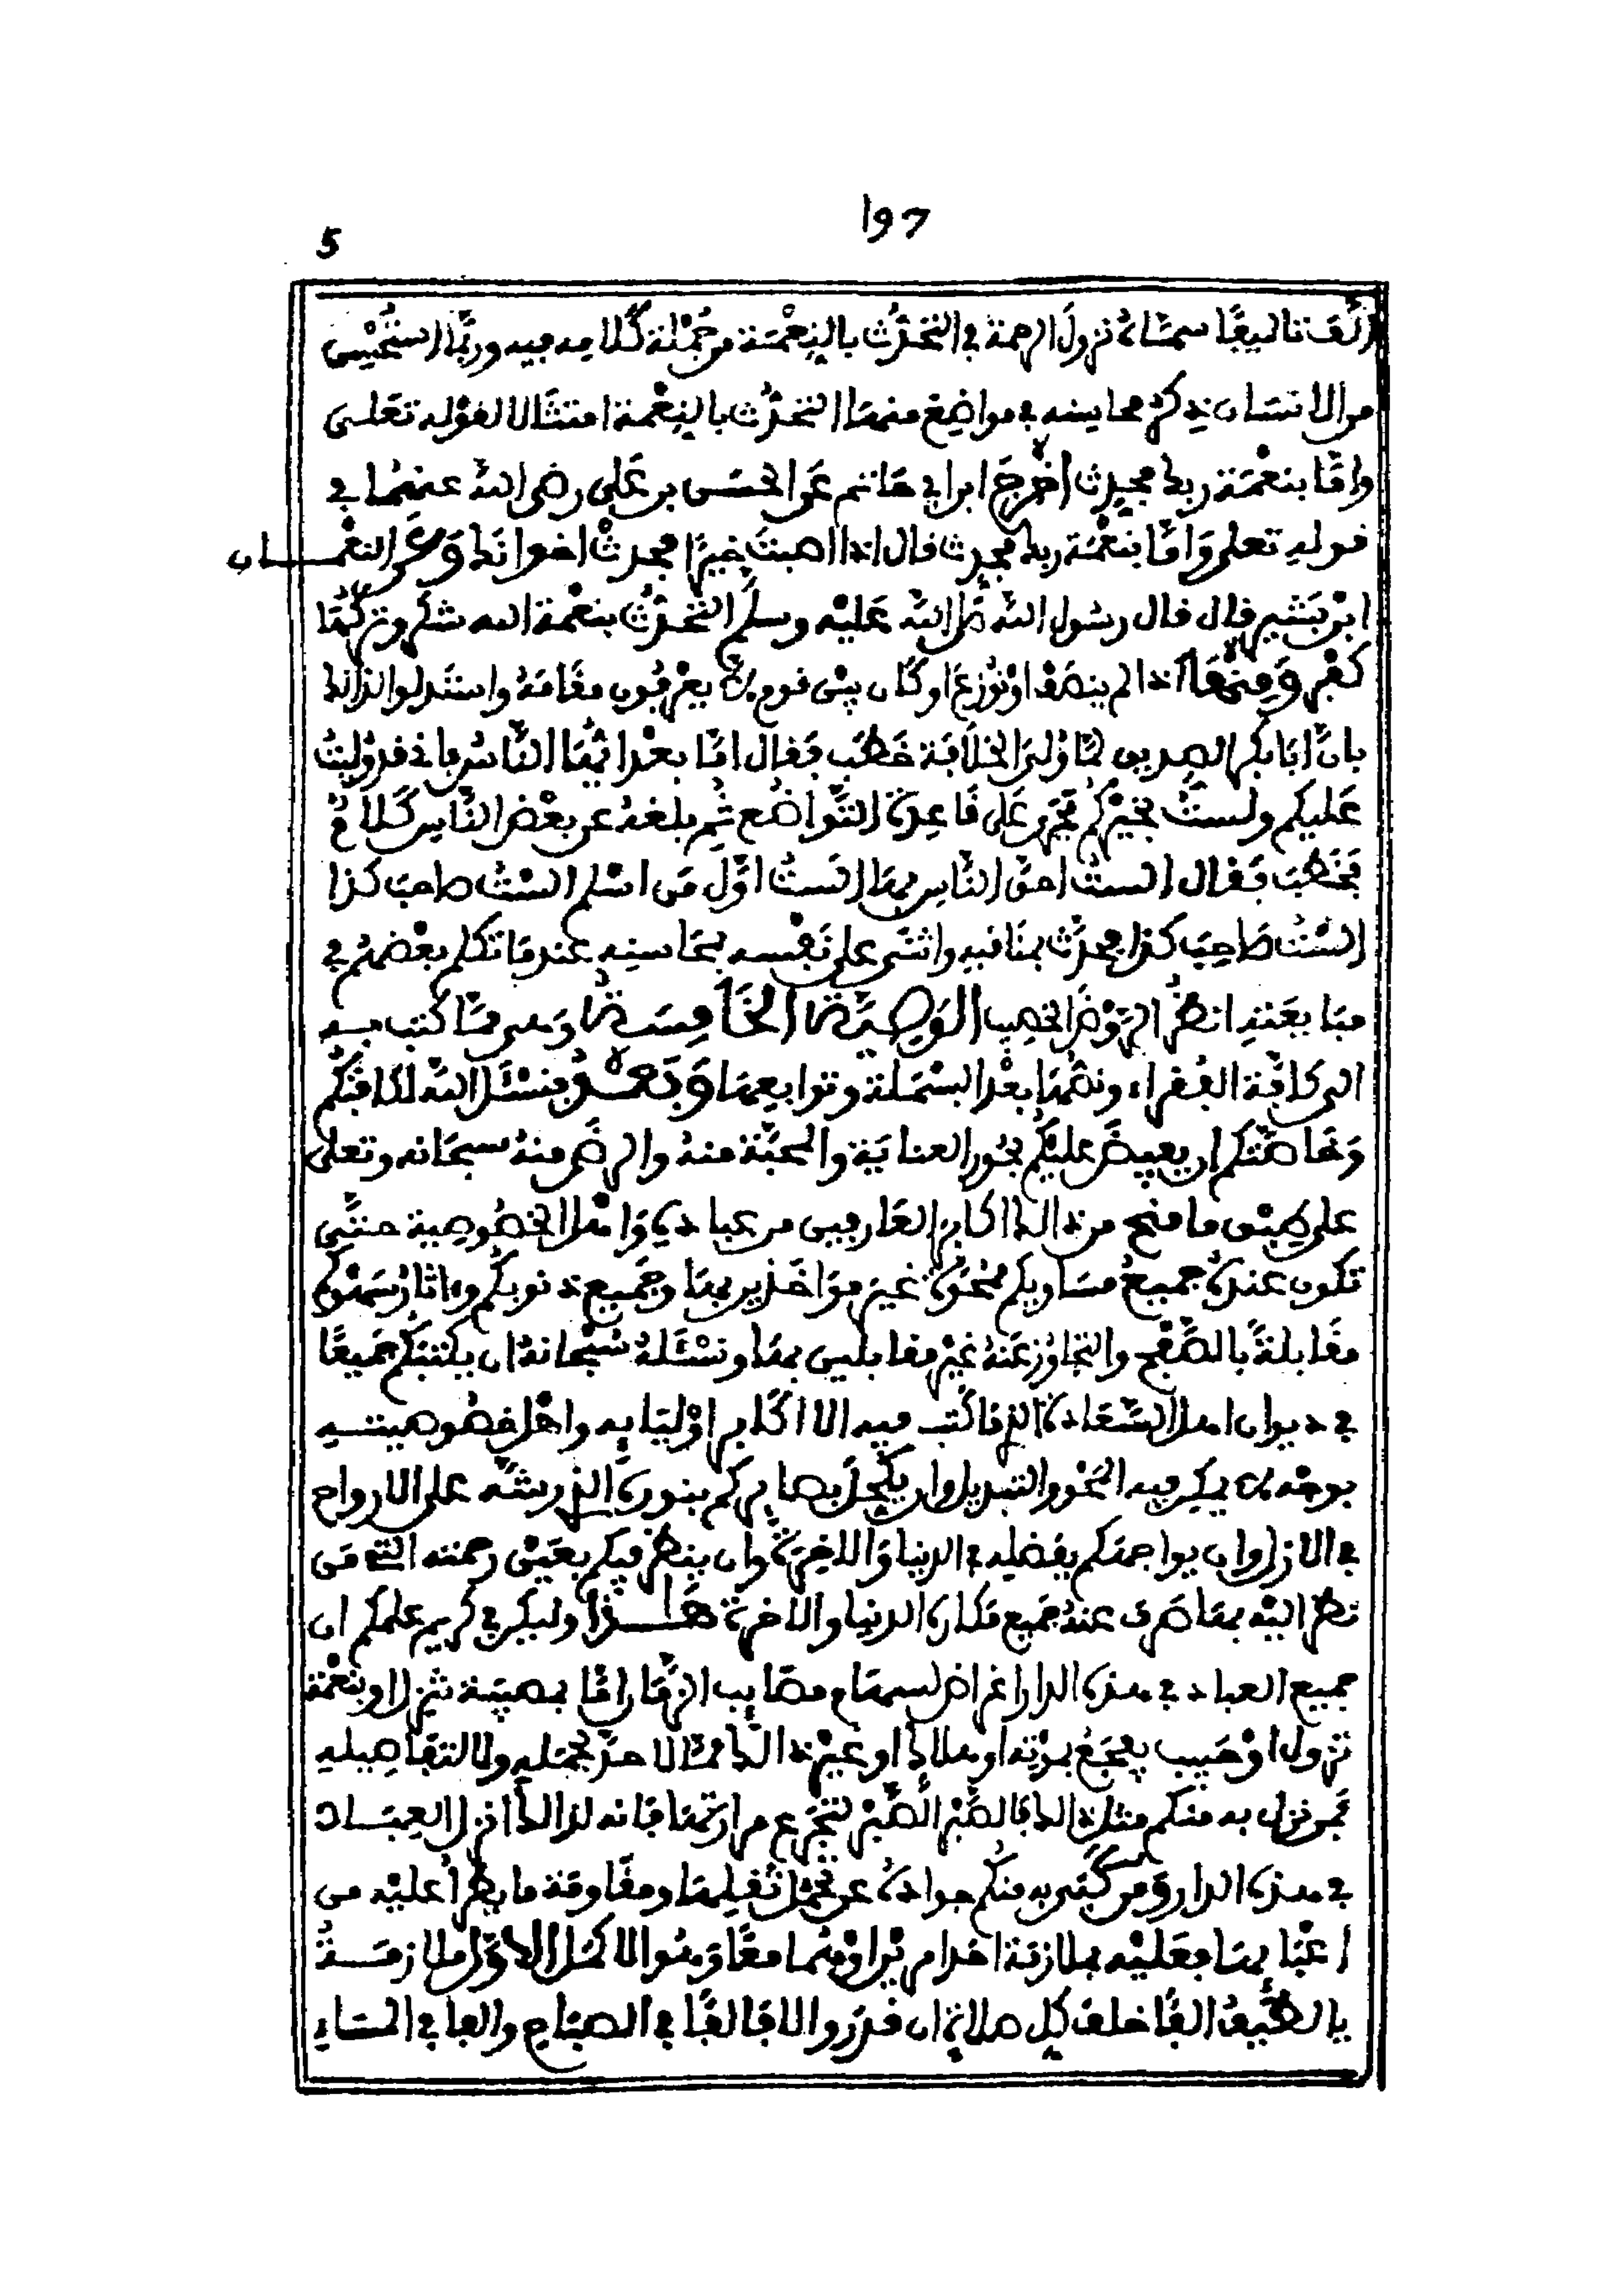 ١٩٦
5
ألف تأليفا سماه نزول الرحمة في التحدث بالنعمة من جملة كلامه فيه وربما استحسن
من الانسان ذكر محاسنه في مواضع منها التحدث بالنعمة امتثالا لقوله تعلى
واما بنعمة ربك فحدث أخرج ابن ابي حاتم عن الحسن بن علي رضي الله عنهما في
قوله تعلى واما بنعمة ربك فحدث قال اذا اصبت خيرا فحدث اخوانك وعن النعمان
ابن بشير قال قال رسول الله صلى الله عليه وسلم التحدث بنعمة الله شكر وتركها
كفر ومنها اذا لم ينصف او نوزع او كان بين قوم لا يعرفون مقامه واستدلوا لذلك
بان ابا بكر الصديق لما ولى الخلافة خطب فقال اما بعد ايها الناس فاني قد وليت
عليكم ولست بخيركم فجرى على قاعدة التواضع ثم بلغه عن بعض الناس كلام
فخطب فقال الست احق الناس بها الست اول من اسلم الست صاحب كذا
الست صاحب كذا فحدث بمناقبه واثنى على نفسه بمحاسنه عند ما تكلم بعضهم في
مبايعته انظر الروض الخصيب الوصية الخامسة ومن ما كتب به
الى كافة الفقراء ونصها بعد البسملة وتوابعها وبعد فنسئل الله لكافتكم
وخاصتكم ان يفيض عليكم بحور العناية والمحبة منه والرضى منه سبحانه وتعلى
على طبق ما منح من ذلك اكابر العارفين من عباده واهل الخصوصية حتى
تكون عنده جميع مساويكم ممحوة غير مؤاخذين بها وجميع ذنوبكم وءاثار سهوكم
مقابلة بالصفح والتجاوز عنه غير مقابلين بها ونسئله سبحانه ان يكتبكم جميعا
في ديوان اهل السعادة الذي ما كتب فيه الا اكابر اوليايه واهل خصوصيته
بوجه لا يمكن فيه المحو والتبديل وان يكحل بصايركم بنوره الذي رشه على الارواح
في الازل وان يواجهكم بفضله في الدنيا والاخرة وان ينظر فيكم بعين رحمته التي من
نظر اليه بها صرف عنه جميع مكاره الدنيا والاخرة هذا وليكن في كريم علمكم ان
جميع العباد في هذه الدار اغراض لسهام مصايب الزمان اما بمصيبة تنزل او بنعمة
تزول او حبيب يفجع بموته او هلاك او غير ذلك مما لا حد لجمله ولا لتفاصيله
فمن نزل به منكم مثل ذلك فالصبر الصبر لتجرع مرارتها فانه لذلك انزل العباد
في هذه الدار ومن كبى به منكم جواده عن تحمل ثقلها ومقاومة ما يطرأ عليه من
اعبائها فعليه بملازمة احد امرين او هما معا وهو الاكمل الاول ملازمة
يا لطيف الفا خلف كل صلاة ان قدر والا فالفا في الصباح والفا في المساء